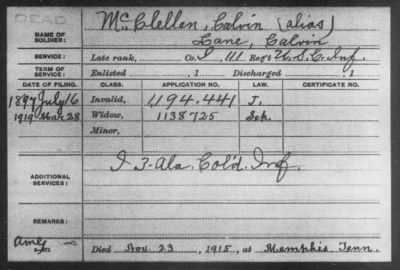 DEAD
NAME OF SOLDIER: McClellen, Calvin (alias)
Lane, Calvin
SERVICE: Late rank, Co. I, 111 Reg't U.S.C. Inf.
TERM OF SERVICE: Enlisted , 1 Discharged , 1
DATE OF FILING. CLASS. APPLICATION NO. LAW. CERTIFICATE NO.
1897 July 16 Invalid, 1194.441 J.
1919 Mar 28 Widow, 1138725
Minor,
ADDITIONAL SERVICES: I 3-Ala. Col'd. Inf.
REMARKS:
Died Nov. 23, 1915, at Memphis Tenn.